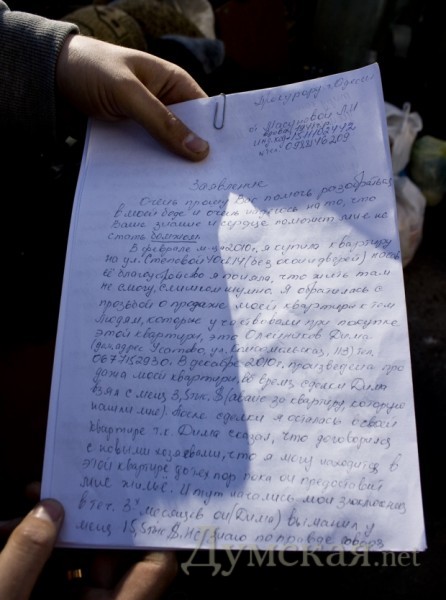 Прокурору г. Одессы
от Масуновой Л.И
Заявление
Очень прошу Вас помочь разобраться
в моей беде и очень надеюсь на то, что
Ваше знание и сердце поможет мне не
стать бомжом.
В феврале м-це 2010г, я купила квартиру
на ул. Степовой (без окон и дверей) после
её благоустройства я поняла, что жить там
не смогу, слишком шумно. Я обратилась с
просьбой о продаже моей квартиры к тем
людям, которые участвовали при покупке
этой квартиры, это Дима
Усатово, ул. Комсомольская, 113) тел.
0677152930. В декабре 2010г. произведена про
дажа моей квартиры, во время сделки Дима
взял с меня 3,5тыс. $ (аванс за квартиру, которую
нашли мне). После сделки я осталась в своей
квартире т.к. Дима сказал, что договорился
с новыми хозяевами, что я могу находится в
этой квартире до тех пор пока он предоставит
мне жильё. И тут начались мои злоключения
в теч. 3х месяцев он (Дима) выманил у
меня 15,5тыс $. Не знаю по правде говоря
Думская.net